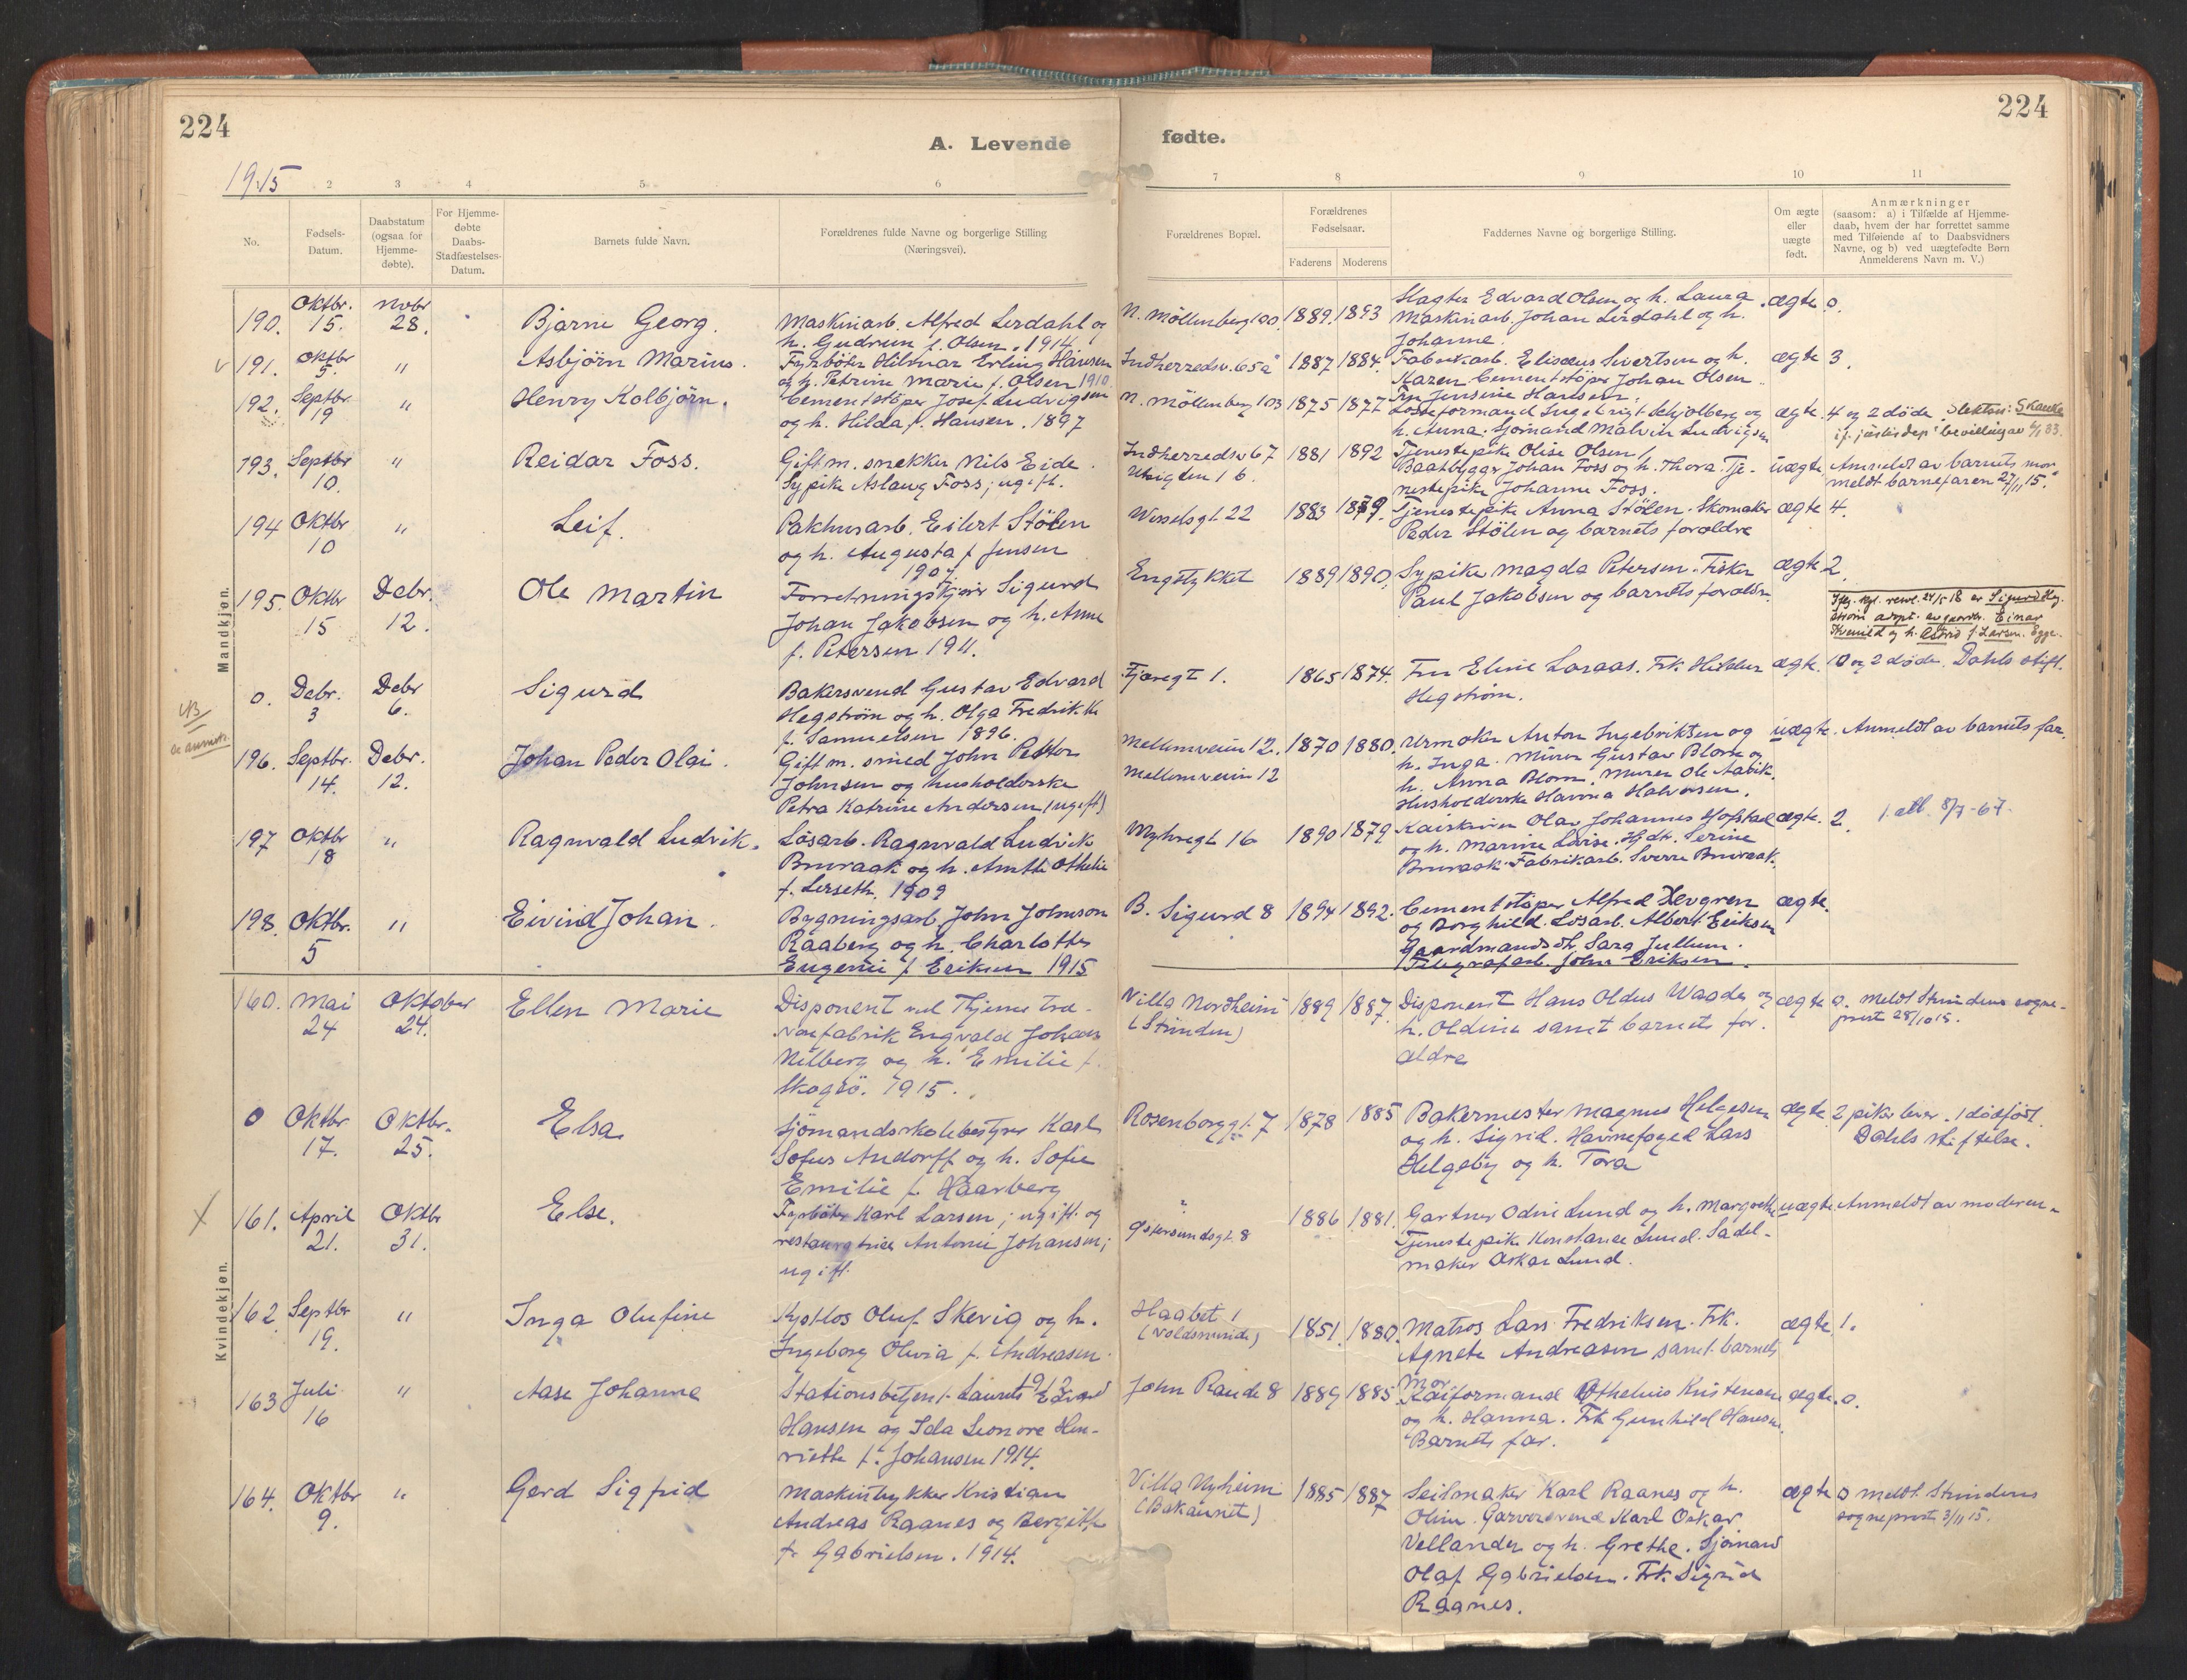 224
A. Levende fødte.
224
1915
2 3 4 5 6 7 8 9 10 11
No.
Fødsels-
Datum.
Daabstatum
(ogsaa for
Hjemme-
døbte).
For Hjemme-
døbte
Daabs-
Stadfæstelses-
Datum.
Barnets fulde Navn.
Forældrenes fulde Navne og borgerlige Stilling
(Næringsvei).
Forældrenes Bopæl.
Forældrenes
Fødselsaar.
Faderens Moderens
Faddernes Navne og borgerlige Stilling.
Om ægte
eller
uægte
født.
Anmærkninger
(saasom: a) i Tilfælde af Hjemme-
daab, hvem der har forrettet samme
med Tilføiende af to Daabsvidners
Navne, og b) ved uægtefødte Børn
Anmelderens Navn m. V.)
Mandkjøn.
190. Oktbr. 15. Novbr 28.
Bjarne Georg.
Maskinarb. Alfred Lerdahl og
h. Gudrun f. Olsen. 1914
N. Möllenberg 100. 1889. 1893
Slagter Edvard Olsen og h. Laura.
Maskinarb. Johan Lerdahl og h.
Johanne.
ægte 0.
v 191. Oktbr 5. "
Asbjörn Marius.
Fyrböter Hilmar Erling Hansen
og h. Petrine Marie f. Olsen 1910.
Indherredsv. 65a 1887 1884.
Fabrikarb. Elisæus Sivertsen og h.
Karen. Cementstöper Johan Olsen.
Frk. Jensine Hansen.
ægte 3.
192. Septbr 19 "
Henry Kolbjörn.
Cementstöper Josef Ludvigsen
og h. Hilda f. Hansen. 1897
N. Möllenberg 103 1875 1877
Losseformand Ingebrigt Schjolberg og
h. Anna. Sjömand Malvin Ludvigsen
Tjenestepike Olise Olsen
ægte. 4 og 2 döde. Slektsn: Skauke
if. justisdep' bevilling av 4/1 83.
193. Septbr 10. "
Reidar Foss.
Gift m. snekker Nils Eide.
Sypike Aslaug Foss; ugift.
Indherredsv 67
Utsigten 16. 1881 1892
Baatbygger Johan Foss og h. Thora. Tje-
nestepike Johanne Foss.
uægte Anmeldt av barnets mor.
meldt barnefaren 27/11 15.
194 Oktbr 10 "
Leif.
Pakhusarb. Eilert Stölen
og h. Augusta f. Jensen
1907
Wesselsgt. 22 1883 1879.
Tjenestepike Anna Stölen. Skomaker
Peder Stölen og barnets forældre
ægte 4.
195. Oktbr 15 Debr. 12.
Ole Martin
Forretningskjører Sigurd
Johan Jakobsen og h. Anne
f. Petersen 1911.
Engstykket 1889 1890.
Sypike Magda Petersen. Fisker
Paul Jakobsen og barnets forældr.
ægte 2.
Iflg. kgl. resol. 24/5 18 er Sigurd Heg-
ström adopt. av gaardbr. Einar
Kvenild og h. Astrid f. Larsen. Egge.
NB
se anmerk.
0. Debr. 3 Debr 6.
Sigurd
Bakersvend Gustav Edvard
Hegström og h. Olga Fredrikke
f. Samuelsen 1896.
Fjæregt 1. 1865 1874.
Fru Eline Laraas. Frk. Hilder
Hegström.
ægte. 10 og 2 döde. Dahls stift.
196. Septbr. 14. Debr. 12.
Johan Peder Olai.
Gift m. smed John Petter
Johnsen og husholderske
Petra Katrine Andersen (ugift)
Mellemveien 12.
Mellemveien 12 1870 1880.
Urmaker Anton Ingebriktsen og
h. Inga. Murer Gustav Blom og
h. Anna Blom. Murer Ole Aabik.
Husholderske Hanna Halvorsen.
uægte. Anmeldt av barnets far.
197 Oktbr 18 "
Ragnvald Ludvik.
Lösarb. Ragnvald Ludvik
Bruraak og h. Anette Othelie
f. Lerseth. 1909
Nyhregt 16 1890 1879
Kaiskriver Olav Johannes Hofstad
og h. Marine Lovise. Hjdtr. Serine
Bruraak. Fabrikarb. Sverre Bruraak.
ægte. 2. 1. att. 8/7-67.
198. Oktbr. 5 "
Eivind Johan.
Bygningsarb. John Johnson
Raaberg og h. Charlotte
Eugenie f. Eriksen 1915
B. Sigurd 8 1894 1892.
Cementstöper Alfred Hevgren
og Borghild. Lösarb. Albert Eriksen
Gaardmandsdtr. Sara Jullum.
Telegrafarb. John Eriksen.
ægte.
Kvindekjøn.
160. Mai 24 Oktober 24.
Ellen Marie
Disponent ved Thjems træ-
varefabrik Engvald Johan
Nilberg og h. Emilie f.
Skogsö. 1915.
Villa Nordheim
(Strinden) 1889 1887.
Disponent Hans Oldus Waade og
h. Oldine samt barnets for-
ældre
ægte 0. Meldt Strindens sogne-
prest 28/10 15.
0 Oktbr 17. Oktbr. 25.
Elsa
Sjömandsskolebestyrer Karl
Sofus Andorff og h. Sofie
Emilie f. Haarberg
Rosenborggt. 7 1878 1885
Bakermester Magnus Helgesen
og h. Sigrid. Havnefoged Lars
Helgeby og h. Tora
ægte 2 piker lever. 1 dödfödt.
Dahls stiftelse.
x 161. April 21. Oktbr 31.
Else.
Fyrböter Karl Larsen; ugift og
restauratrice Antonie Johansen;
ugift.
"
Östersundsgt. 8 1886 1881.
Gartner Odin Lund og h. Margrethe
Tjenestepike Konstance Lund. Sadel-
maker Oskar Lund.
uægte. Anmeldt av moderen.
162 Septbr 19. "
Inga Olufine
Kystlos Oluf Skevig og h.
Ingeborg Olivia f. Andreasen.
1912
Haabet 1
(Voldsminde) 1851. 1880.
Matros Lars Fredriksen. Frk.
Agnete Andreasen samt barnets
mor.
ægte 1.
163 Juli 16 "
Aase Johanne
Stationsbetjent Laurits Edvard
Hansen og Ida Leonore Hen-
riette f. Johansen 1914.
John Raude 8 1889 1885.
Kaiformand Othelius Kristensen
og h. Hanna. Frk Gunhild Hansen.
Barnets far.
ægte. 0.
164. Oktbr 9. "
Gerd Sigfrid
Maskintrykker Kristian
Andreas Raanes og Bergitte
f. Gabrielsen. 1914.
Villa Nyheim
(Bakaunet) 1885 1887
Seilmaker Karl Raanes og h.
Oline. Garversvend Karl Oskar
Vellander og h. Grethe. Sjömand
Olaf Gabrielsen. Frk. Sigrid
Raanes.
ægte 0 Meldt Strindens
sogneprest 3/11 15.